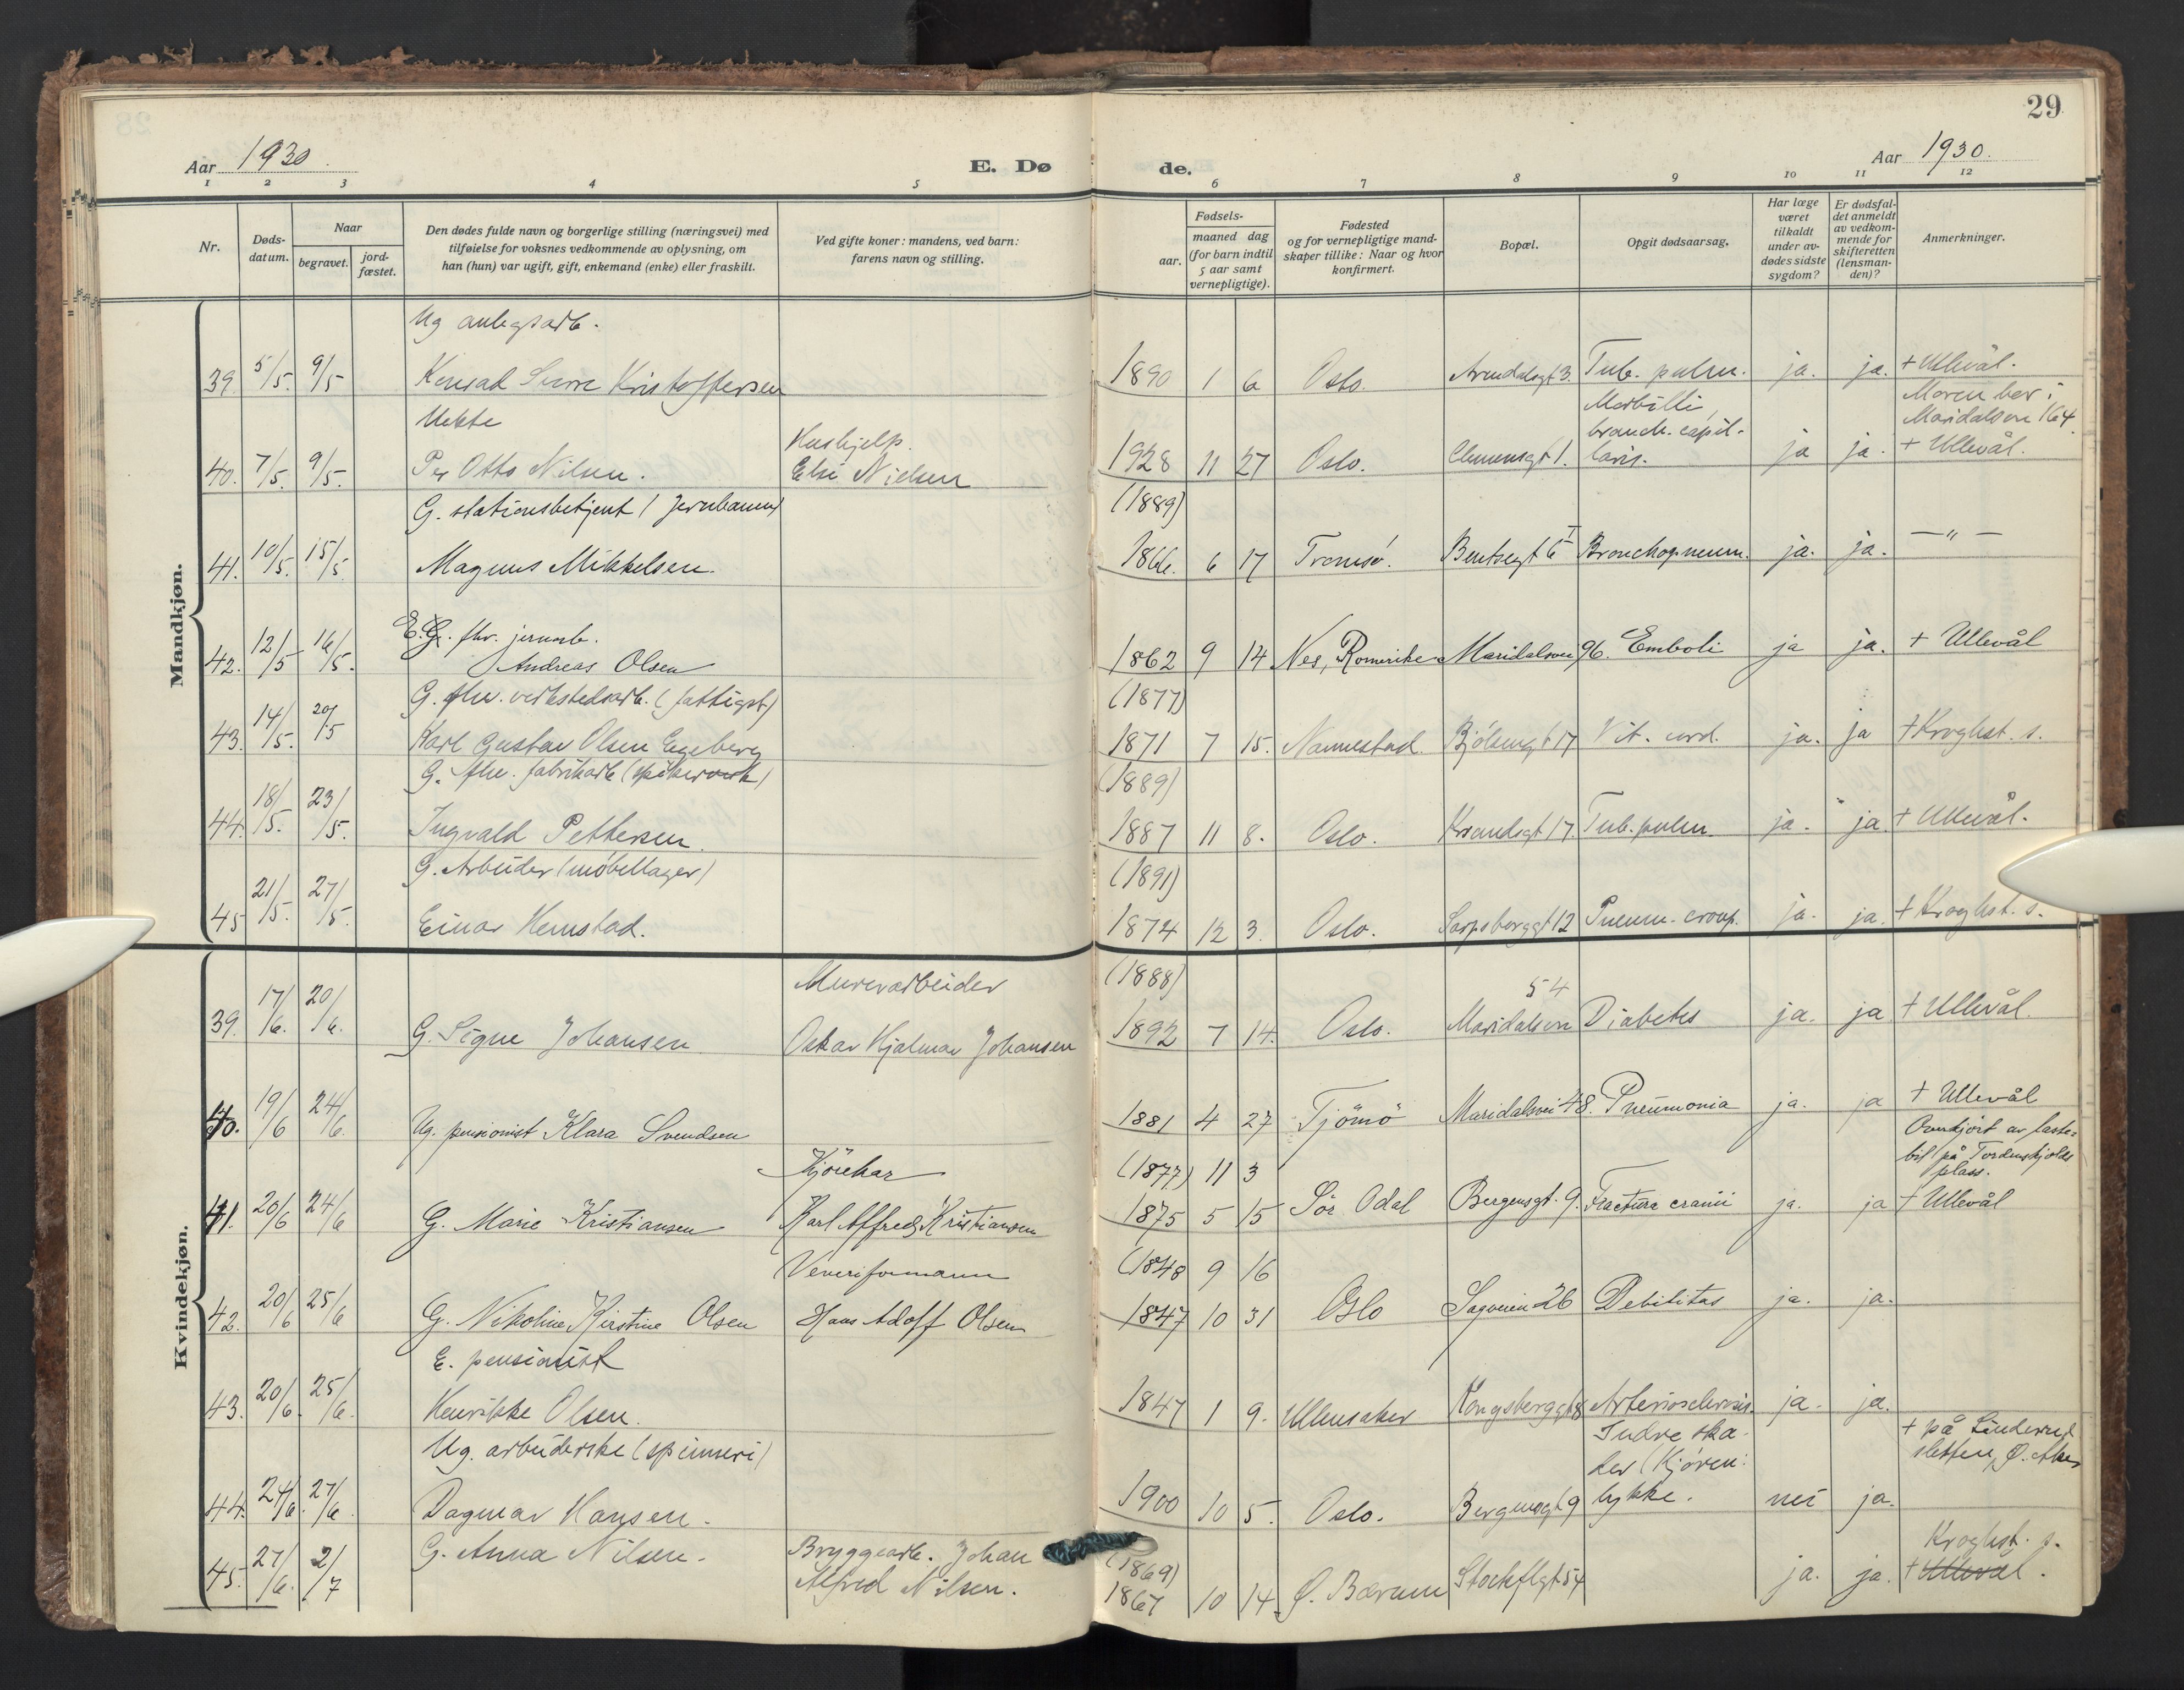 29
Aar 1930.
E. Dø
de.
Aar 1930.
1 2 3 4 5 6 7 8 9 10 11 12
Nr.
Døds-
datum.
Naar
begravet.
jord-
fæstet.
Den dødes fulde navn og borgerlige stilling (næringsvei) med
tilføielse for voksnes vedkommende av oplysning, om
han (hun) var ugift, gift, enkemand (enke) eller fraskilt.
Ved gifte koner: mandens, ved barn:
farens navn og stilling.
Fødsels-
aar.
maaned dag
(for barn indtil
5 aar samt
vernepligtige).
Fødested
og for vernepligtige mand-
skaper tillike: Naar og hvor
konfirmert.
Bopæl.
Opgit dødsaarsag.
Har læge
været
tilkaldt
under av-
dødes sidste
sygdom?
Er dødsfal-
det anmeldt
av vedkom-
mende for
skifteretten
(lensman-
den)?
Anmerkninger.
Mandkjøn.
Ug anlegsarb.
39. 5/5. 9/5 Konrad Kristoffersen 1890 1 6 Oslo. Arendalsgt 3. Tub. pulm. ja. ja. + Ullevål.
Uekte
Hushjelp.
Morbilli,
bronch. capil-
Moren bor i
Maridalsvn 164.
40. 7/5. 9/5. Per Otto Nilsen. Else Nielsen 1928 11 27 Oslo. Clemensgt 1. laris. ja ja. + Ullevål.
G. stationsbetjent (Jernbanen) (1889)
41. 10/5. 15/5 Magnus Mikkelsen. 1866. 6 17 Tromsø. Bentsegt 6 I Bronchopneum. ja. ja. — „ —
E. G. fhv. jernarb.
42. 12/5 16/5. Andreas Olsen 1862 9 14 Nes, Romerike Maridalsvei 96. Emboli ja ja. + Ullevål
G. fhv. verkstedsarb. (fattigst) (1877)
43. 14/5. 20/5 Karl Gustav Olsen Engeberg 1871 7 15. Nannestad. Bjølsengt 17 Vit. cord. ja. ja + Kroghst. s.
G. fhv. fabrikarb (spikerverk) (1889)
44. 18/5. 23/5. Ingvald Pettersen. 1887 11 8. Oslo. Krsandsgt 17. Tub. pulm. ja. ja. + Ullevål.
G. Arbeider (møbellager) (1891)
45 21/5. 27/5 Einar Hemstad. 1874 12 3. Oslo. Sarpsborggt 12 Pneum. croup. ja. ja. + Kroghst. s.
Kvindekjøn.
Murerarbeider (1888) 54
39. 17/6. 20/6. G. Signe Johansen Oskar Hjalmar Johansen 1892 7 14. Oslo. Maridalsvn Diabetes ja. ja + Ullevål.
40. 19/6 24/6. Ug. pensionist Klara Svendsen 1881 4 27 Tjömö Maridalsvei 48. Pneumonia ja. ja + Ullevål
Kjörekar (1877) 11 3
Overkjört av laste-
bil på Tordenskjolds
plass.
41. 20/6 24/6 G. Marie Kristiansen Karl Alfred Kristiansen 1875 5 15 Sör Odal Bergensgt. 9. Fractura cranii ja. ja + Ullevål
Veveriformann (1848 9 16
42. 20/6 25/6 G. Nikoline Kirstine Olsen Hans Adolf Olsen 1847 10 31 Oslo Sagveien 26 Debilitas ja. ja.
E. pensionist
43. 20/6. 25/6. Henrikke Olsen. 1847 1 9. Ullensaker Kongsberggt 8 Arteriosclerosis. ja. ja.
Ug. arbeiderske (spinneri)
Indre ska-
der (Kjøreu-
+ på Linderud
sletten, Ø. Aker
44. 24/6. 27/6. Dagmar Hansen. 1900 10 5. Oslo. Bergensgt 9 lykke. nei ja.
45. 27/6. 2/7 G. Anna Nilsen. Bryggearb. Johan
Alfred Nilsen. (1869)
1867 10 14. Ø. Bærum Stockflgt 54 ja. ja. Kroghst. s.
+ Ullevål.